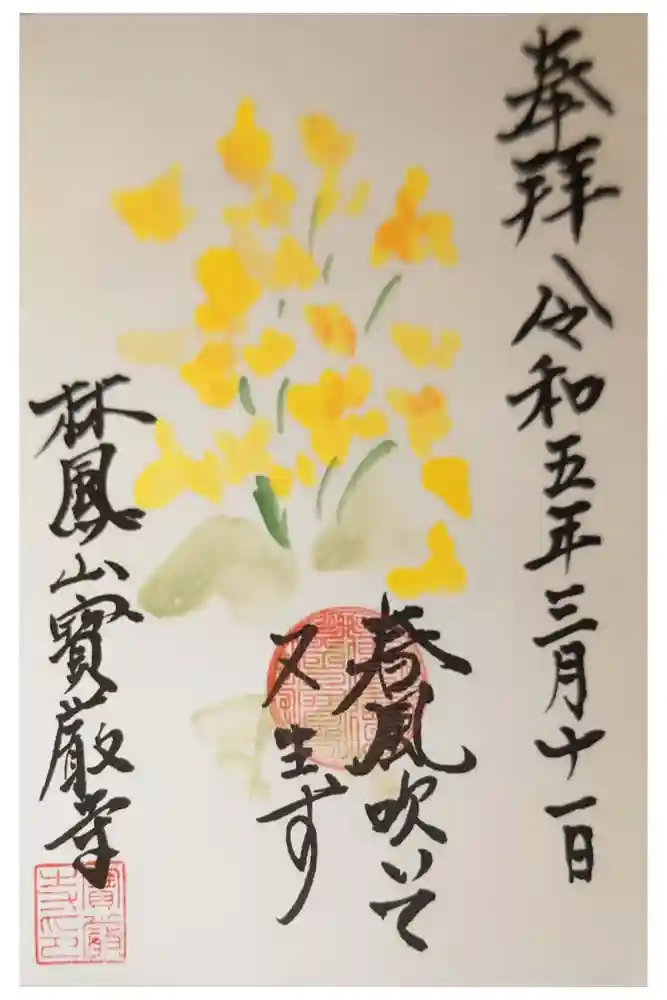 奉拝 令和五年三月十一日
春風吹いて
又生ず
林鳳山寳厳寺